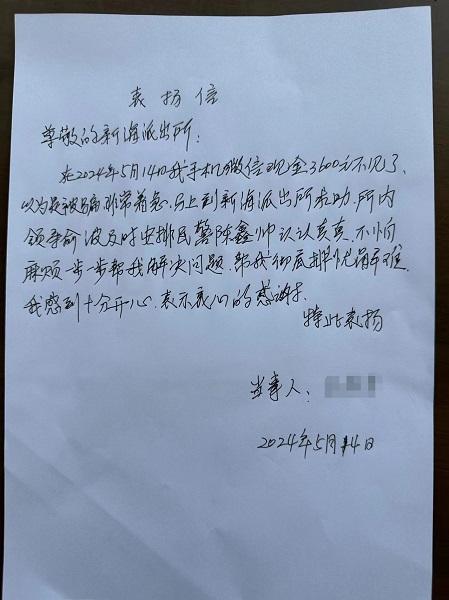 表扬信
尊敬的新海派出所：
在2024年5月14日我手机微信现金3600元不见了，
以为是被骗非常着急，马上到新海派出所求助，所内
领导俞波及时安排民警陈鑫帅认认真真，不怕
麻烦一步一步帮我解决问题，帮我彻底排忧解难
我感到十分开心，表示衷心的感谢。
特此表扬
当事人：
2024年5月14日